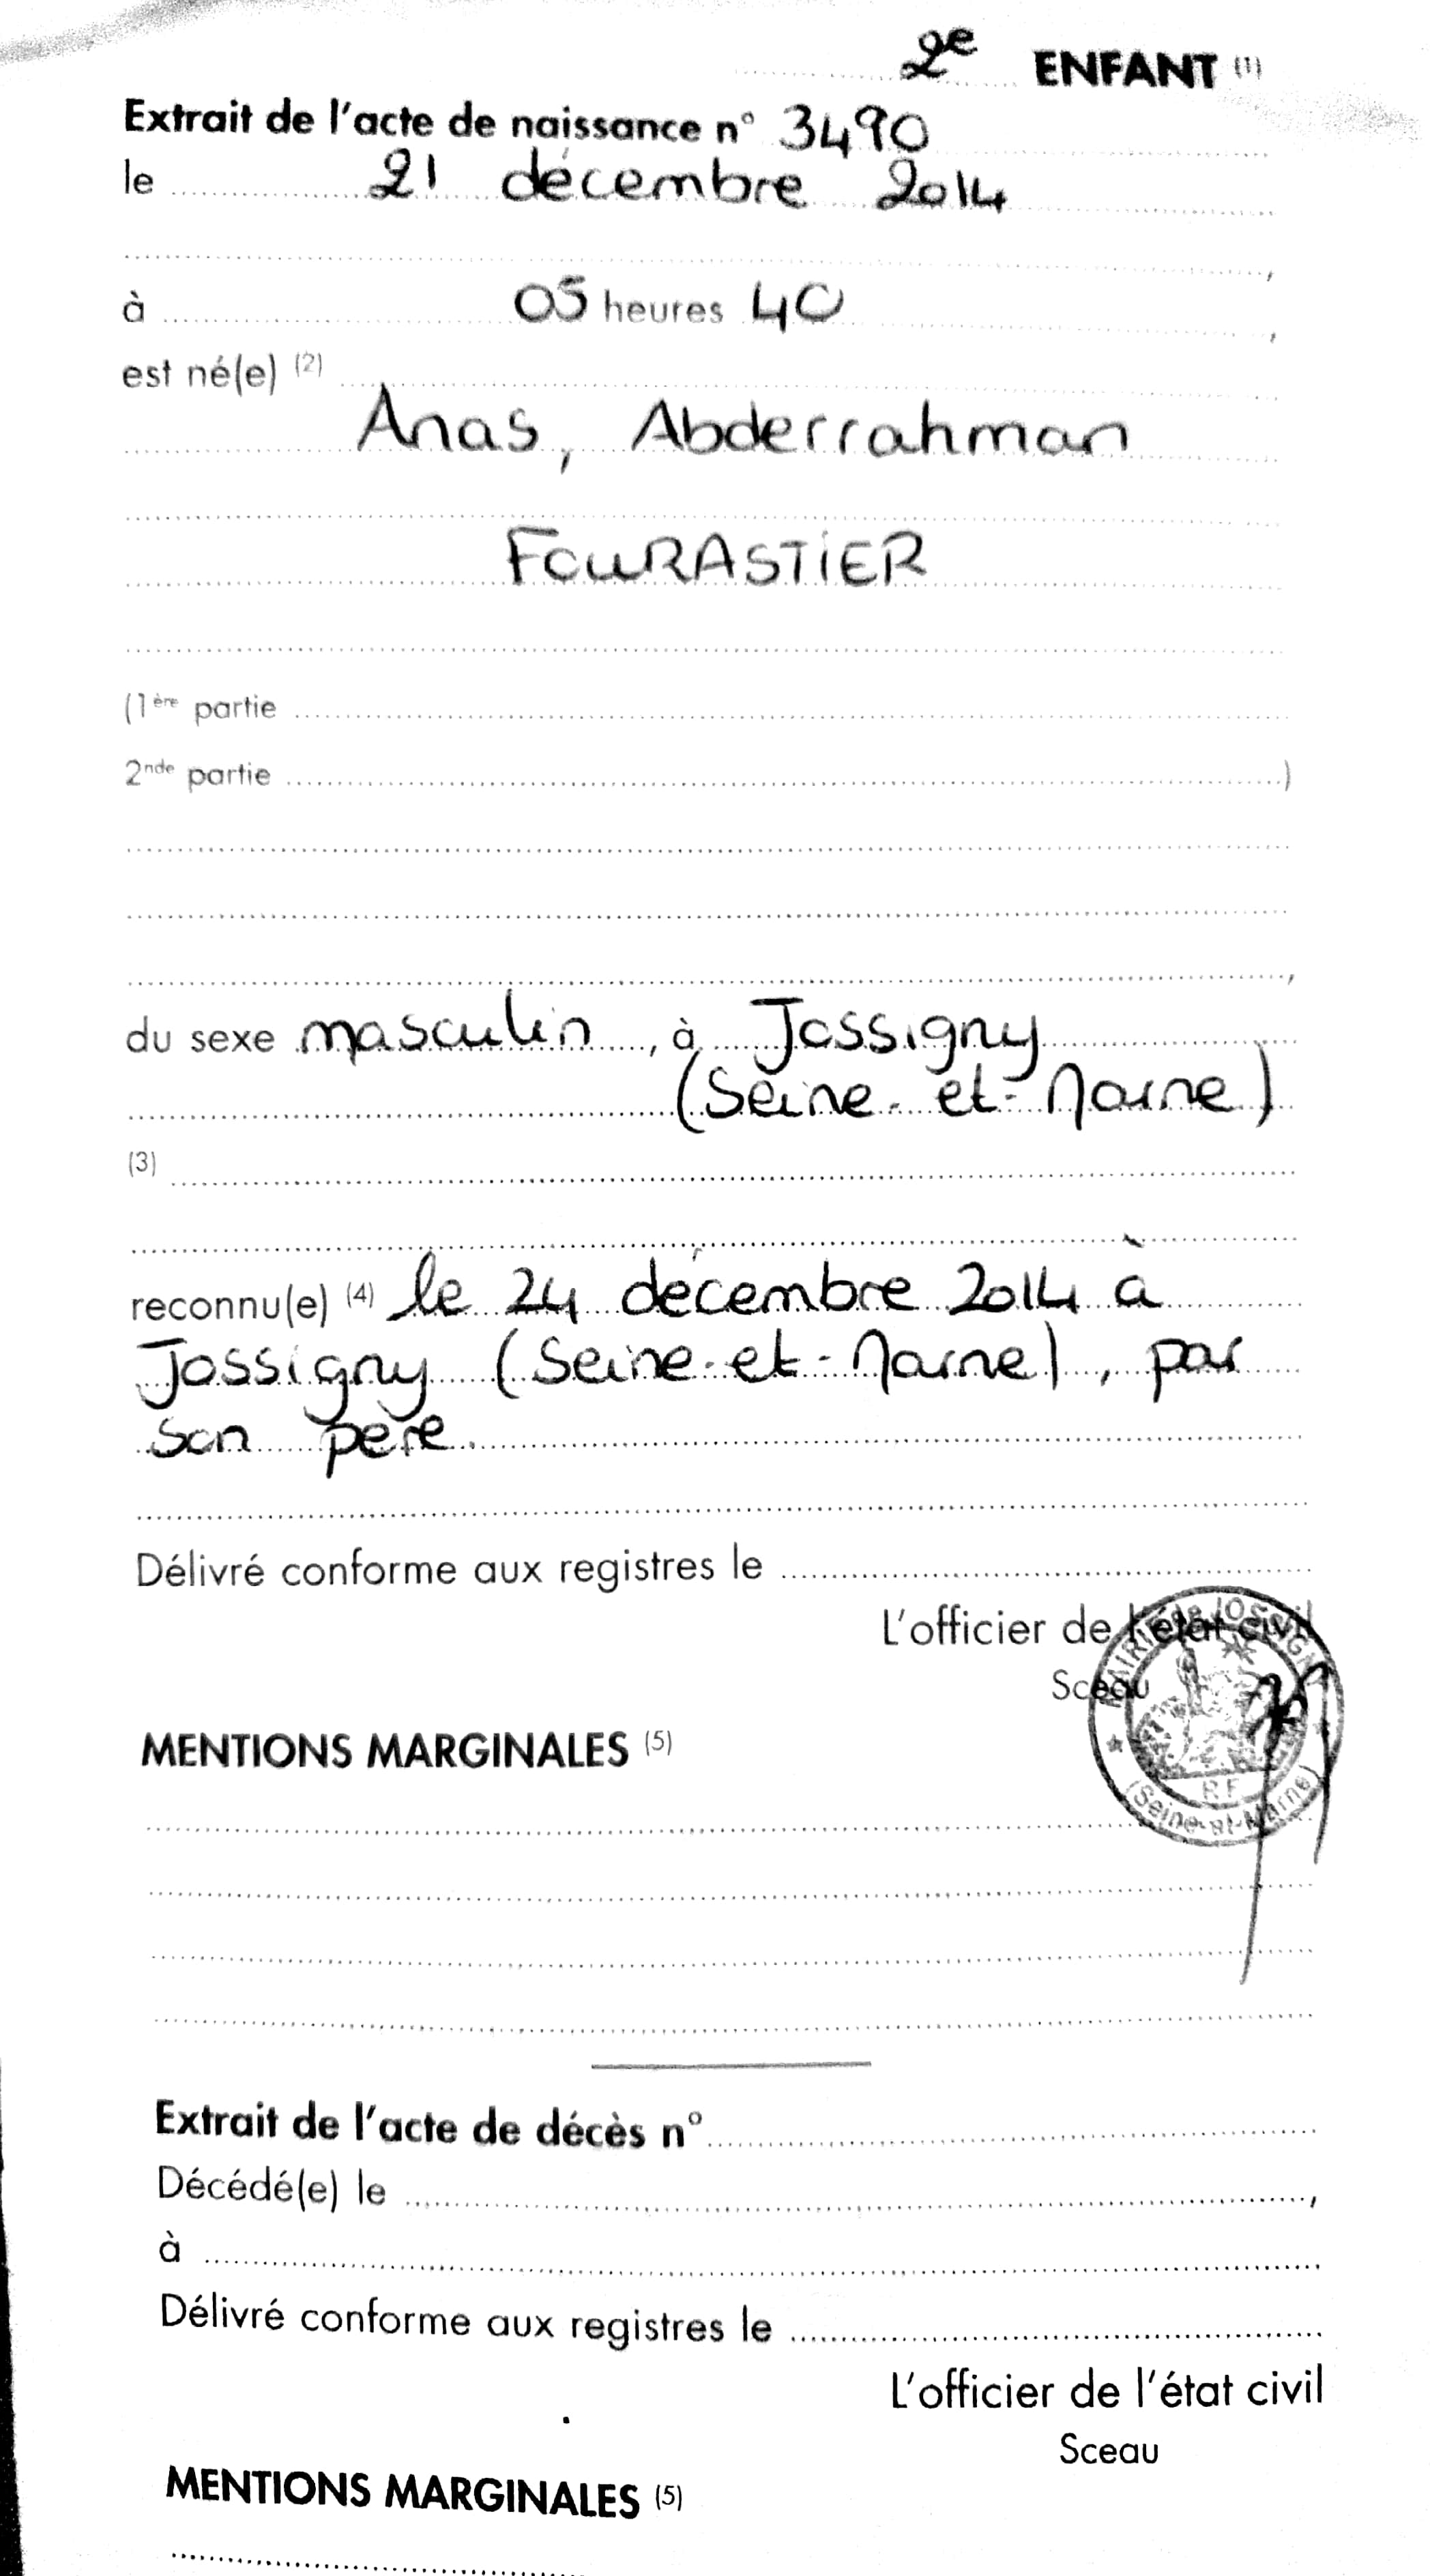 2e ENFANT (1)
Extrait de l'acte de naissance n° 3490
le 21 décembre 2014
,
à 05 heures 40 ,
est né(e) (2)
Anas, Abderrahman
FOURASTIER
(1ère partie
2nde partie )
,
du sexe masculin, à Jossigny
(Seine-et-Marne)
(3)
reconnu(e) (4) le 24 décembre 2014 à
Jossigny (Seine-et-Marne), par
son père.
Délivré conforme aux registres le
L'officier de l'état civil
Sceau
MAIRIE de JOSSIGNY
R.F.
(Seine-et-Marne)
MENTIONS MARGINALES (5)
Extrait de l'acte de décès n°
Décédé(e) le ,
à
Délivré conforme aux registres le
L'officier de l'état civil
Sceau
MENTIONS MARGINALES (5)